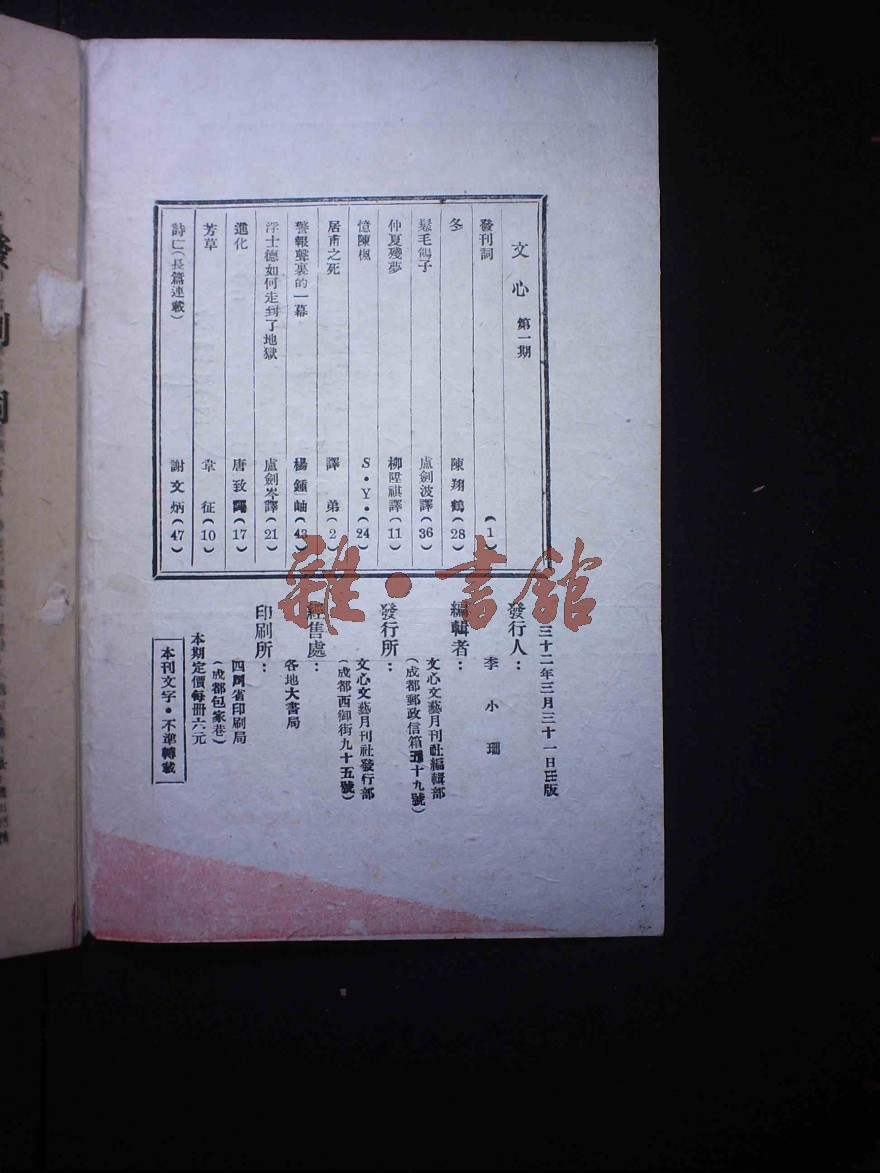 文心 第一期
發刊詞 (1)
冬 陳翔鶴 (28)
鬆毛鴿子 盧劍波譯 (36)
仲夏殘夢 柳陞祺譯 (11)
憶陳楓 S·Y· (24)
居甫之死 譯弟 (2)
警報聲裏的一幕 楊鍾岫 (43)
浮士德如何走到了地獄 盧劍岑譯 (21)
進化 唐致 (17)
芳草 韋征 (10)
詩亡(長篇連載) 謝文炳 (47)
三十二年三月三十一日出版
發行人：
李小珊
編輯者：
文心文藝月刊社編輯部
(成都郵政信箱 十九號)
發行所：
文心文藝月刊社發行部
(成都西御街九十五號)
經售處：
各地大書局
印刷所：
四川省印刷局
(成都包家巷)
本期定價每冊六元
本刊文字·不準轉載
雜·書館
發刊詞